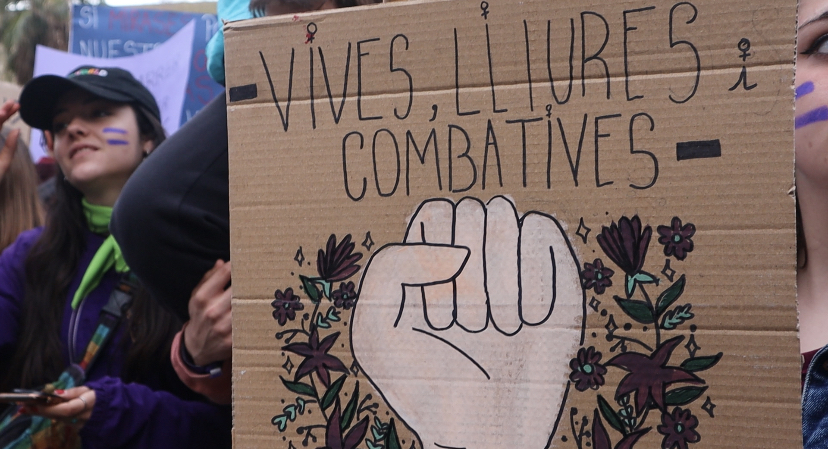 SI
NUESTR
-VIVES, LLIURES i
COMBATIVES-